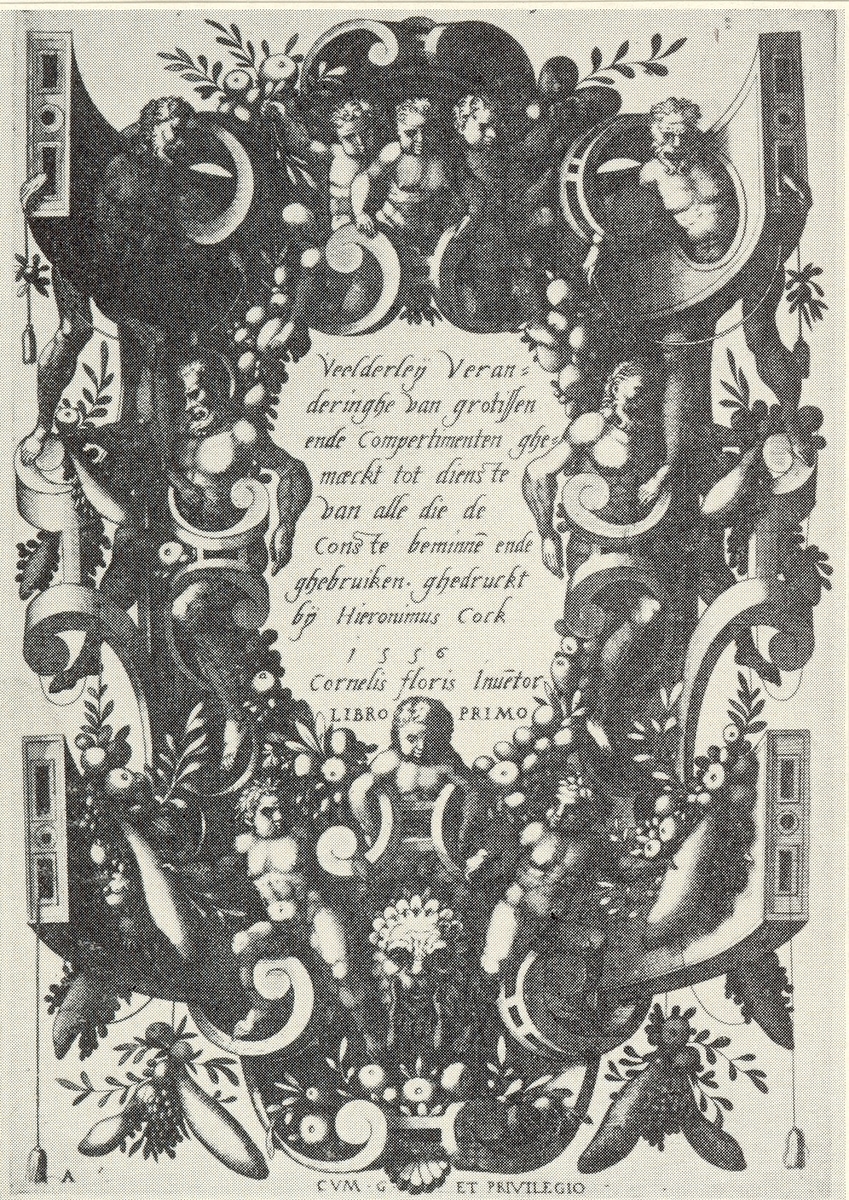 Veelderleÿ Veran=
deringhe van grotissen
ende Compertimenten ghe=
mæckt tot dienste
van alle die de
Conste beminnē ende
ghebruiken. ghedruckt
bÿ Hieronimus Cock
1556
Cornelis floris Inuētor
LIBRO PRIMO
A
CVM · G · ET PRIVILEGIO